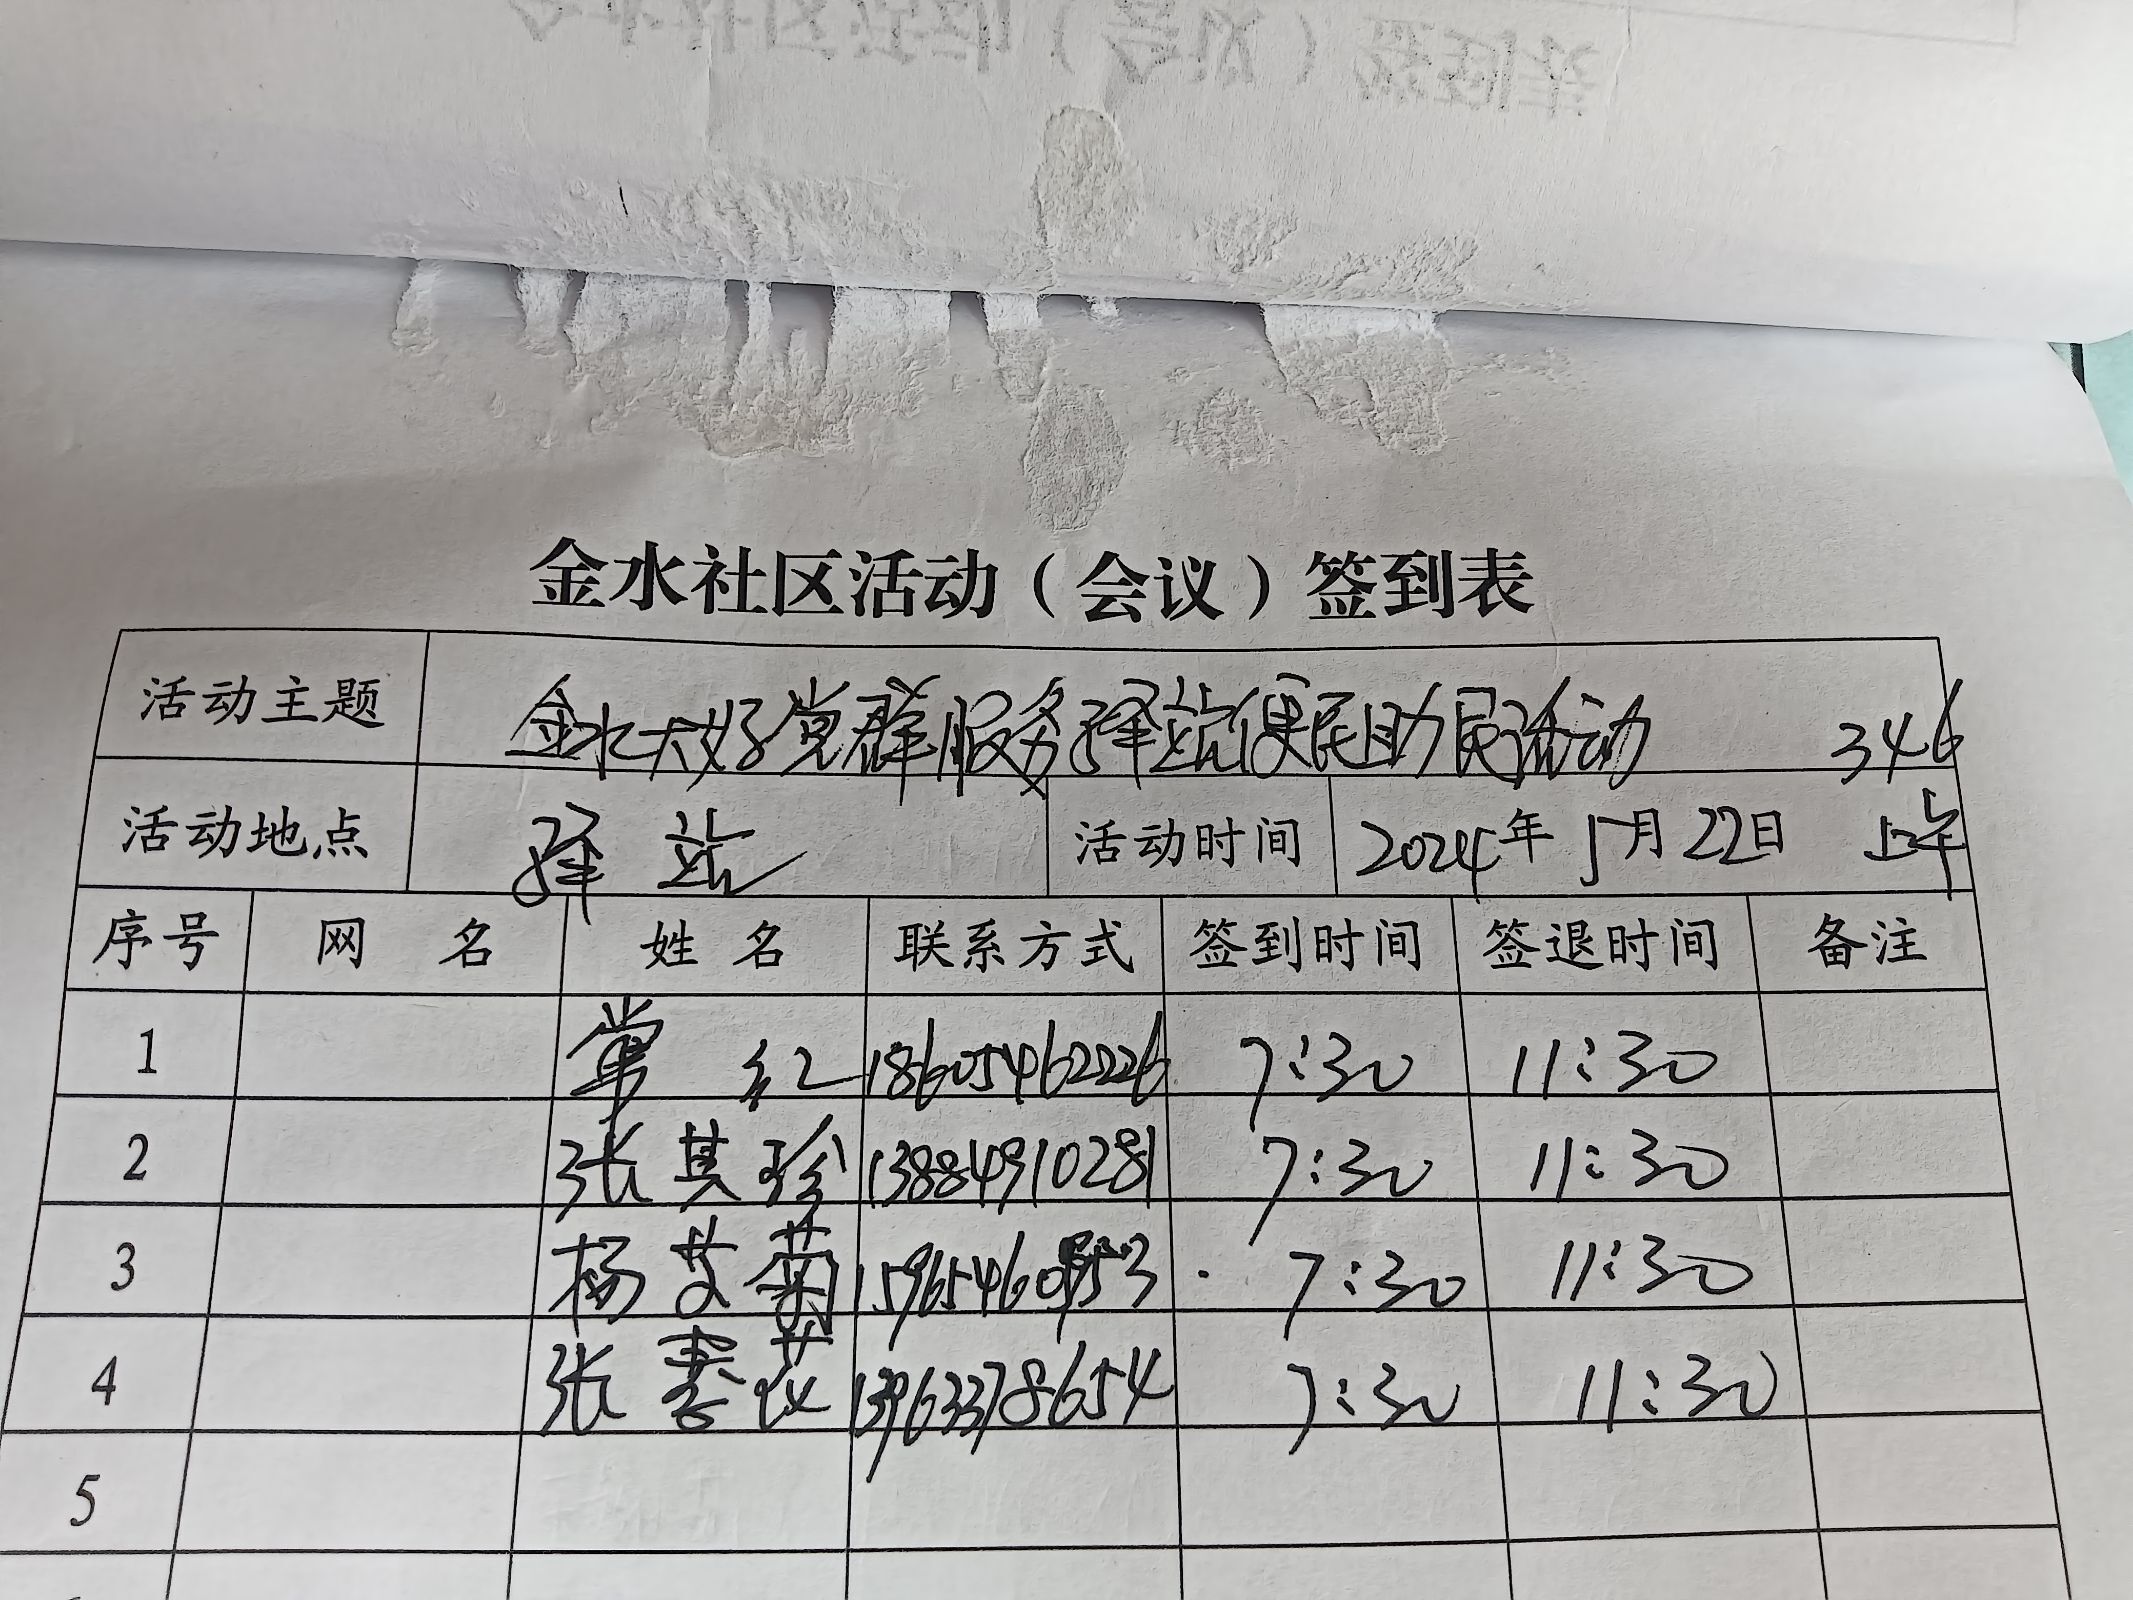 金水社区活动（会议）签到表
活动主题 金水大好党群服务驿站便民助民活动 346
活动地点 驿站 活动时间 2024年5月22日 上午
序号 网名 姓名 联系方式 签到时间 签退时间 备注
1 常红 18605462226 7:30 11:30
2 张其珍 13884910281 7:30 11:30
3 杨艾菊 7:30 11:30
4 张 13963378654 7:30 11:30
5